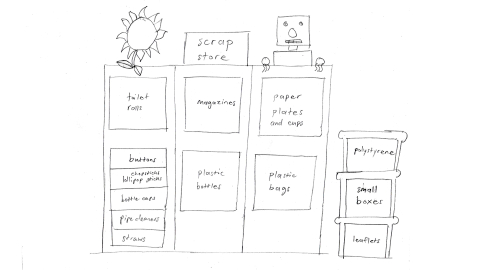 scrap
store
toilet
rolls
magazines
paper
plates
and cups
buttons
chopsticks
lollipop sticks
bottle caps
pipe cleaners
straws
plastic
bottles
plastic
bags
polystyrene
small
boxes
leaflets